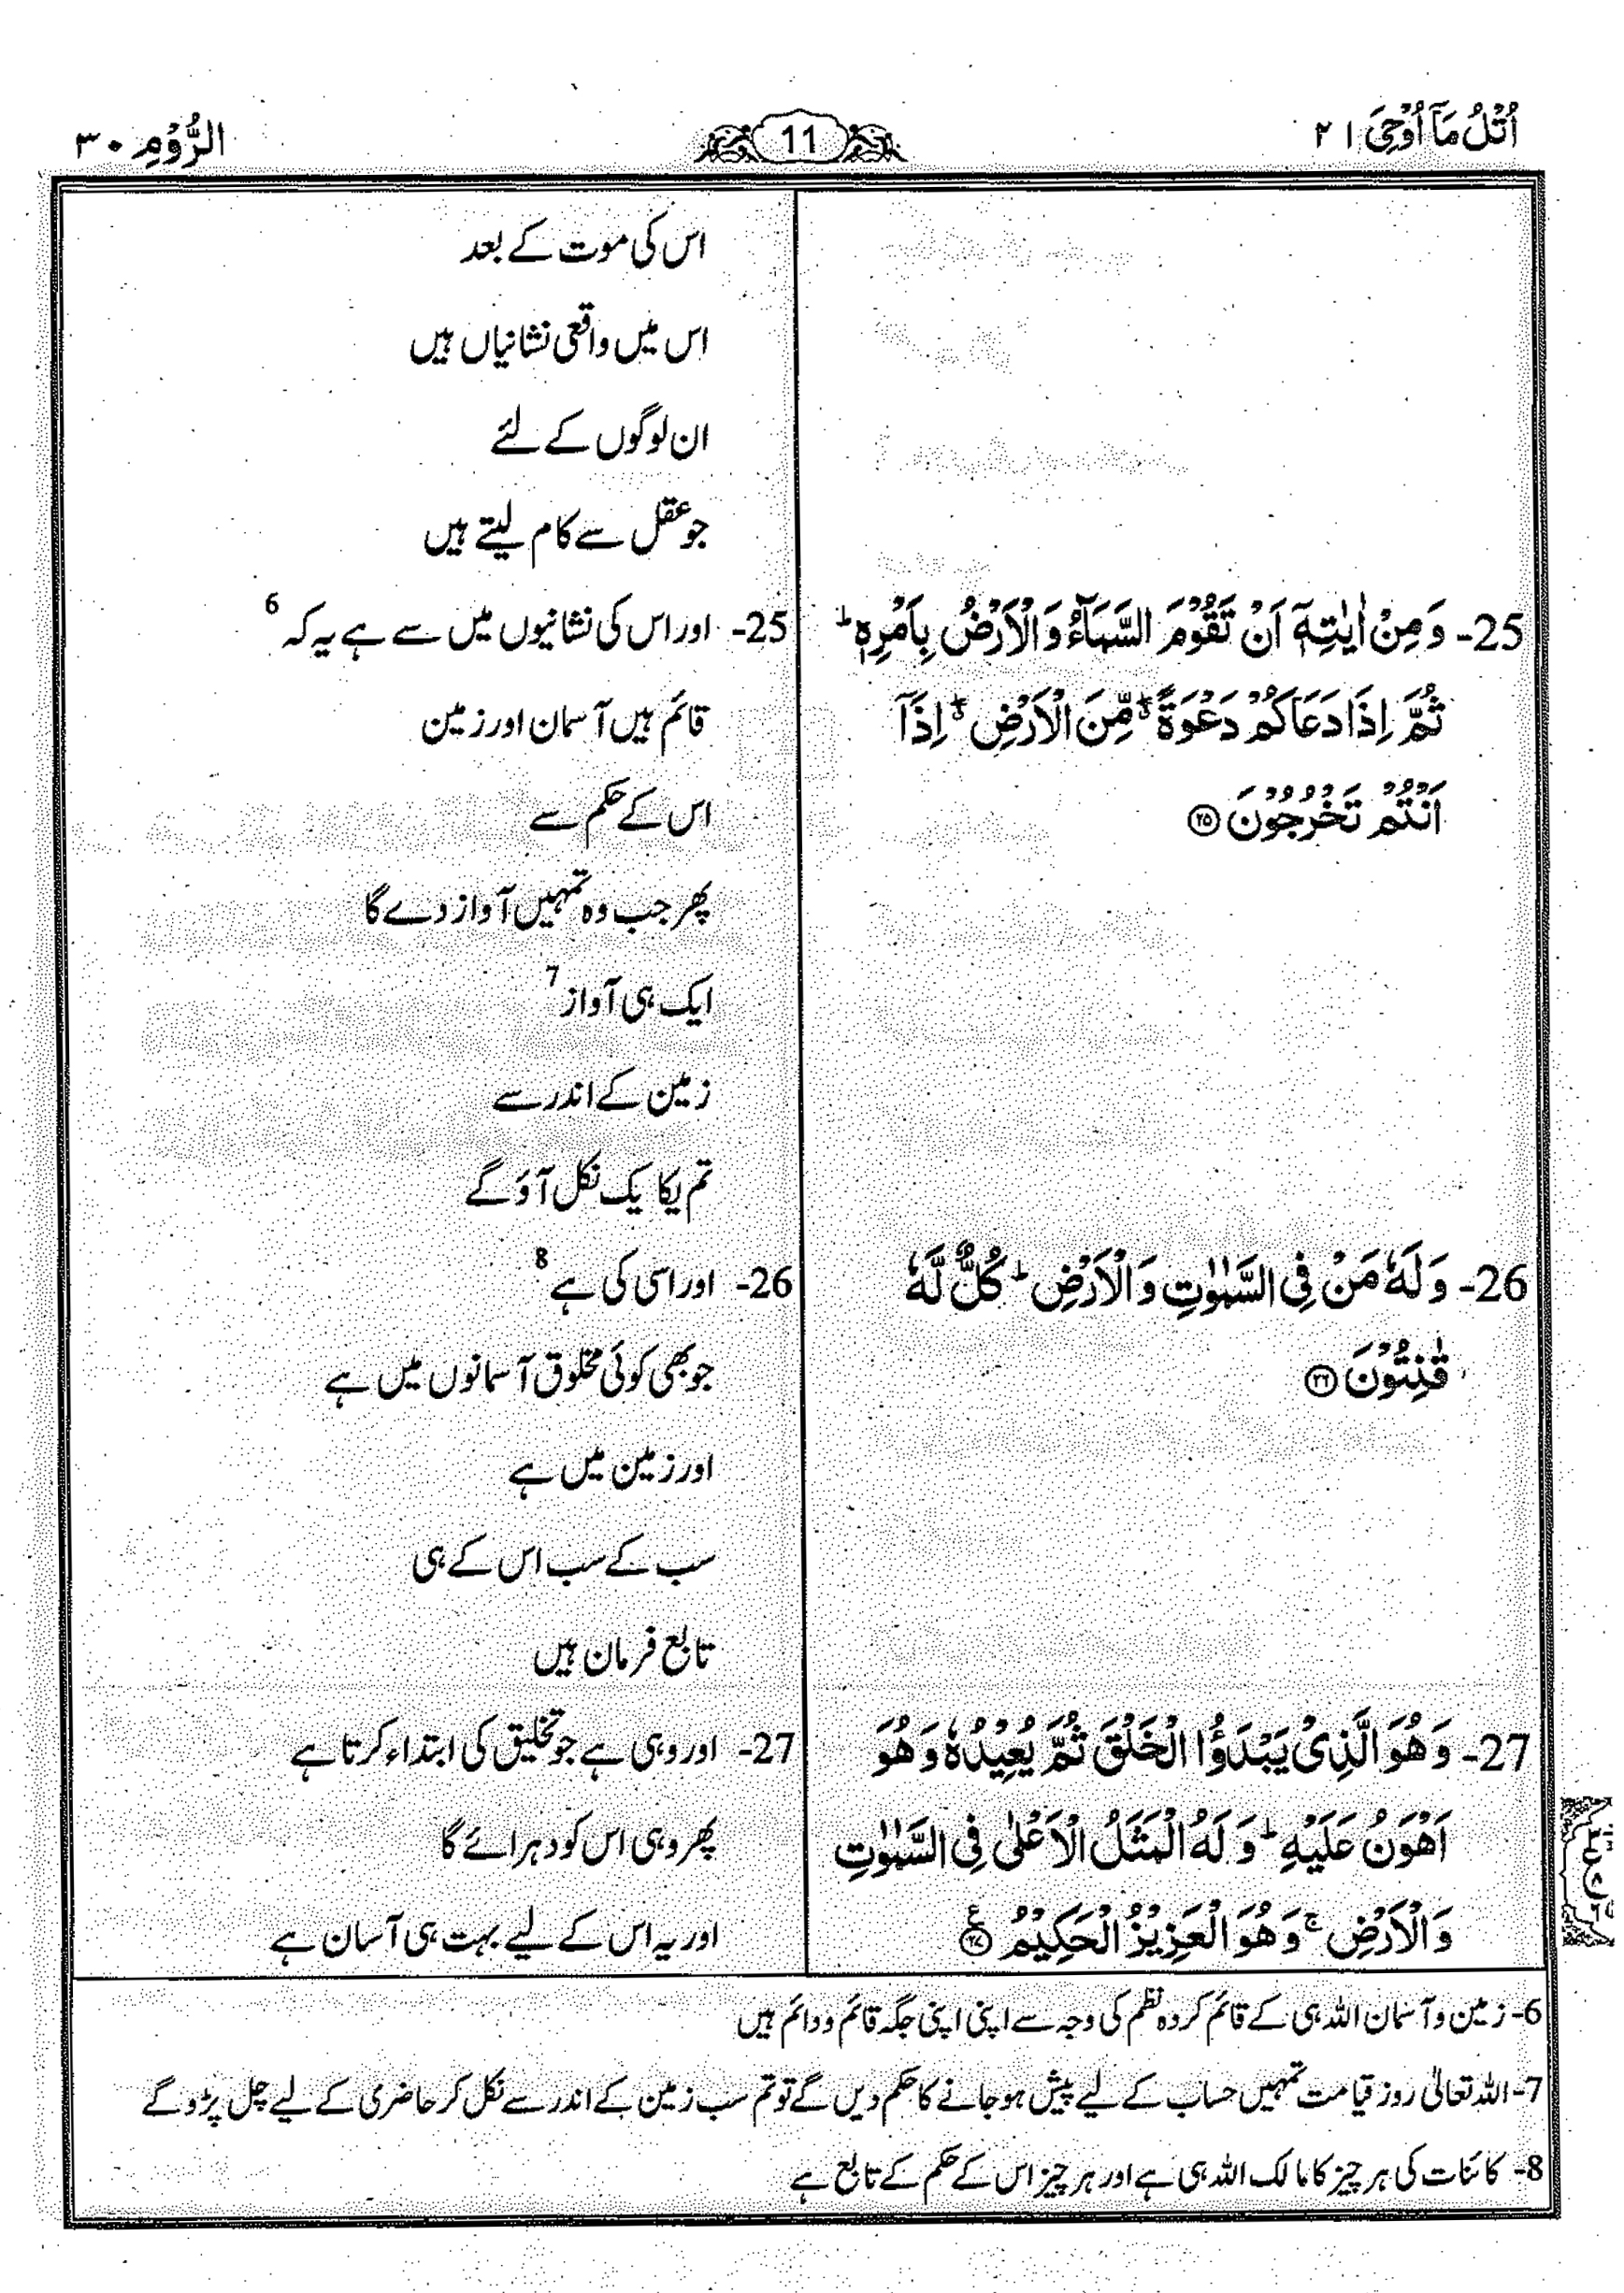 اُتْلُ مَاۤ اُوْحِیَ ۲۱
11
الرُّوْمِ ۳۰
اس کی موت کے بعد
اس میں واقعی نشانیاں ہیں
ان لوگوں کے لئے
جو عقل سے کام لیتے ہیں
25- وَ مِنْ اٰیٰتِهٖۤ اَنْ تَقُوْمَ السَّمَآءُ وَ الْاَرْضُ بِاَمْرِهٖ ؕ
ثُمَّ اِذَا دَعَاكُمْ دَعْوَةً ۖۗ مِّنَ الْاَرْضِ ۖۗ اِذَاۤ
اَنْتُمْ تَخْرُجُوْنَ ﴿۲۵﴾
25- اور اس کی نشانیوں میں سے ہے یہ کہ 6
قائم ہیں آسمان اور زمین
اس کے حکم سے
پھر جب وہ تمہیں آواز دے گا
ایک ہی آواز 7
زمین کے اندر سے
تم یکایک نکل آؤ گے
26- وَ لَهٗ مَنْ فِی السَّمٰوٰتِ وَ الْاَرْضِ ؕ كُلٌّ لَّهٗ
قٰنِتُوْنَ ﴿۲۶﴾
26- اور اسی کی ہے 8
جو بھی کوئی مخلوق آسمانوں میں ہے
اور زمین میں ہے
سب کے سب اس کے ہی
تابع فرمان ہیں
27- وَ هُوَ الَّذِیْ یَبْدَؤُا الْخَلْقَ ثُمَّ یُعِیْدُهٗ وَ هُوَ
اَهْوَنُ عَلَیْهِ ؕ وَ لَهُ الْمَثَلُ الْاَعْلٰی فِی السَّمٰوٰتِ
وَ الْاَرْضِ ۚ وَ هُوَ الْعَزِیْزُ الْحَكِیْمُ ﴿۲۷﴾ ع
27- اور وہی ہے جو تخلیق کی ابتداء کرتا ہے
پھر وہی اس کو دہرائے گا
اور یہ اس کے لیے بہت ہی آسان ہے
6- زمین و آسمان اللہ ہی کے قائم کردہ نظم کی وجہ سے اپنی اپنی جگہ قائم و دائم ہیں
7- اللہ تعالیٰ روز قیامت تمہیں حساب کے لیے پیش ہو جانے کا حکم دیں گے تو تم سب زمین کے اندر سے نکل کر حاضری کے لیے چل پڑو گے
8- کائنات کی ہر چیز کا مالک اللہ ہی ہے اور ہر چیز اس کے حکم کے تابع ہے